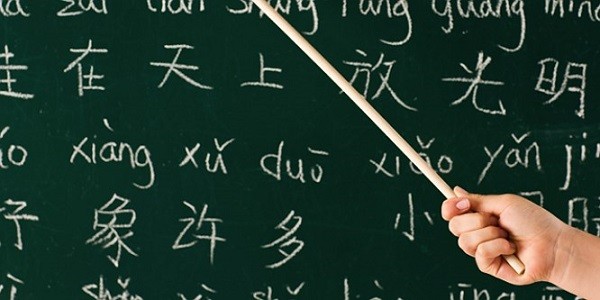 zài tiān shàng fàng guāng míng
在天上放光明
xiàng xǔ duō xiǎo yǎn
象许多小